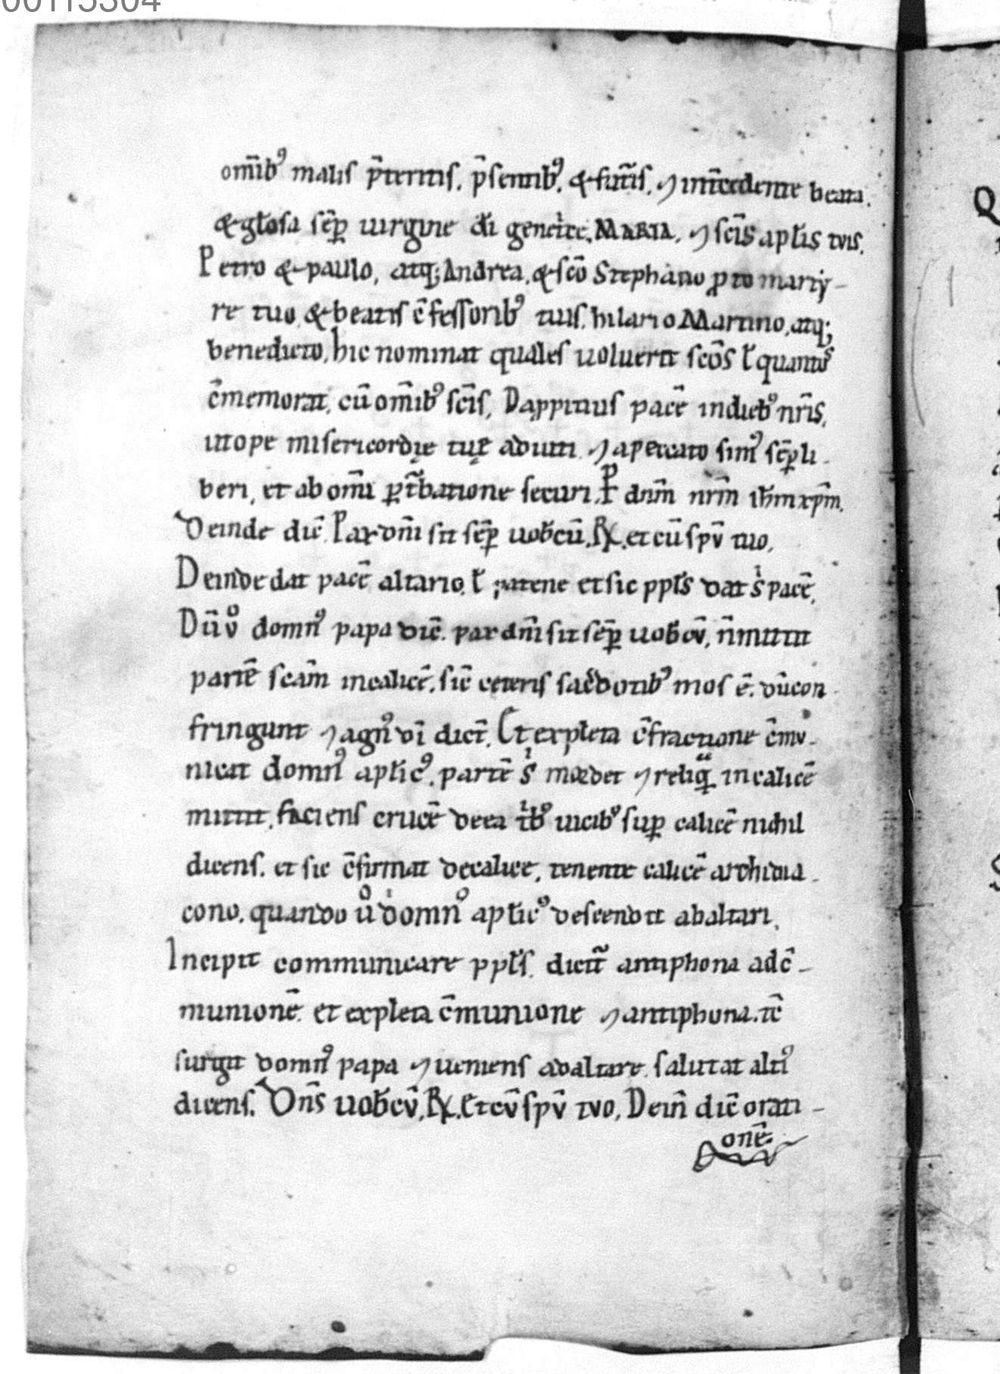 00115304
om̅ib᷒ malis p̅teritis. p̅sentib᷒. & fut̅is. ⁊ int̅cedente beata.
& gl̅osa sẽp uirgine di̅ genet̅ce. MARIA. ⁊ sc̅is apl̅is tuis.
Petro & paulo, atq; Andrea. & sc̅o Stephano ꝓtomarty-
re tuo, & beatis c̅fessorib᷒ tuis. hilario Martino, atq;
benedicto, hic nominat quales uoluerit sc̅os ł quantos
c̅memorat, cu̅ om̅ib᷒ sc̅is, Da ppitius pace̅ in dieb᷒ nr̅is,
ut ope misericordię tuę adiuti ⁊ a peccato sim᷒ se̅p li-
beri, et ab om̅i ꝑt̅batione securi. P̅ dn̅m nr̅m ih̅m xp̅m.
Deinde dic̅. Pax dom̅i sit se̅p uob̅cu̅. R̸. et cu̅ spu̅ tuo.
Deinde dat pace̅ altario, ł patene et sic ppl̅s dat s̅ pace̅,
Du̅ ů domn᷒ papa dic̅. pax dm̅i sit se̅p uob̅cu̅, n̅ mittit
parte̅ sc̅am in calice̅. sic̅ ceteris sac̅dotib᷒ mos e̅. du̅ con-
fringunt ⁊ agn᷒ di̅ dict̅. Et expleta c̅fractione c̅mu-
nicat domn᷒ apl̅ic᷒. parte̅ s̅ mordet ⁊ reliq̅ in calice̅
mittit, faciens cruce̅ de ea t̅b᷒ uicib᷒ sup̅ calice̅ nichil
dicens. et sic c̅firmat de calice, tenente calice̅ archidia-
cono. quando ů domn᷒ apl̅ic᷒ descendit ab altari.
Incipit communicare ppl̅s. dicit̅ antiphona ad c̅-
munione̅. et expleta c̅munione ⁊ antiphona. tc̅
surgit domn᷒ papa ⁊ ueniens ad altare. salutat alt᷒
dicens. Dn̅s uob̅cu̅. R̸. Et cu̅ spu̅ tuo. Dein̅ dic̅ orati-
one̅.